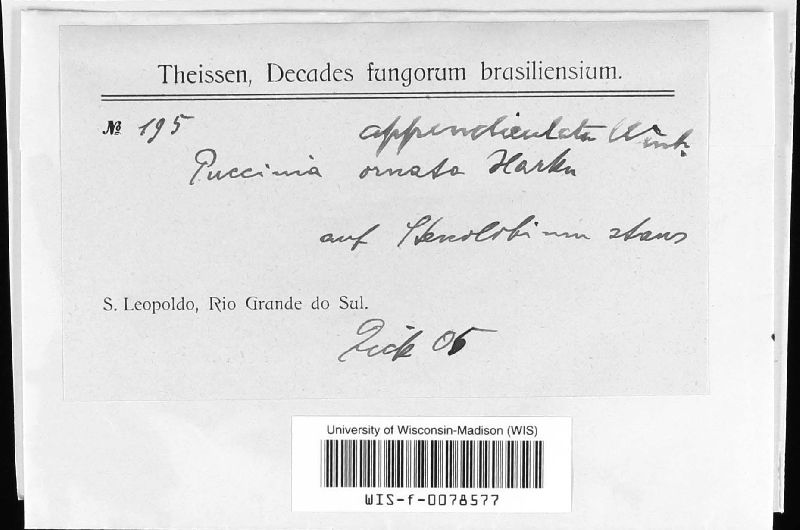 Theissen, Decades fungorum brasiliensium.
№ 195
appendiculata Wint.
Puccinia ornata Harkn
auf Stenolobium stans
S. Leopoldo, Rio Grande do Sul.
Rick 05
University of Wisconsin-Madison (WIS)
WIS-f-0078577